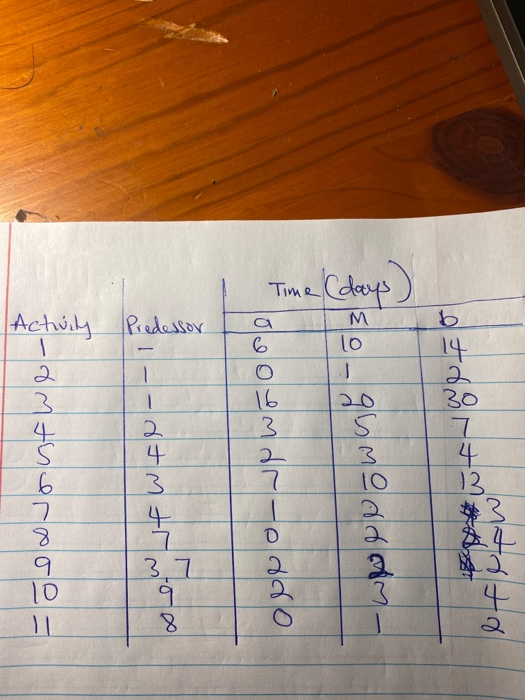 Time (days)
Activity Predessor a M b
1 - 6 10 14
2 1 0 1 2
3 1 16 20 30
4 2 3 5 7
5 4 2 3 4
6 3 7 10 13
7 4 1 2 3
8 7 0 2 4
9 3,7 2 2 2
10 9 2 3 4
11 8 0 1 2